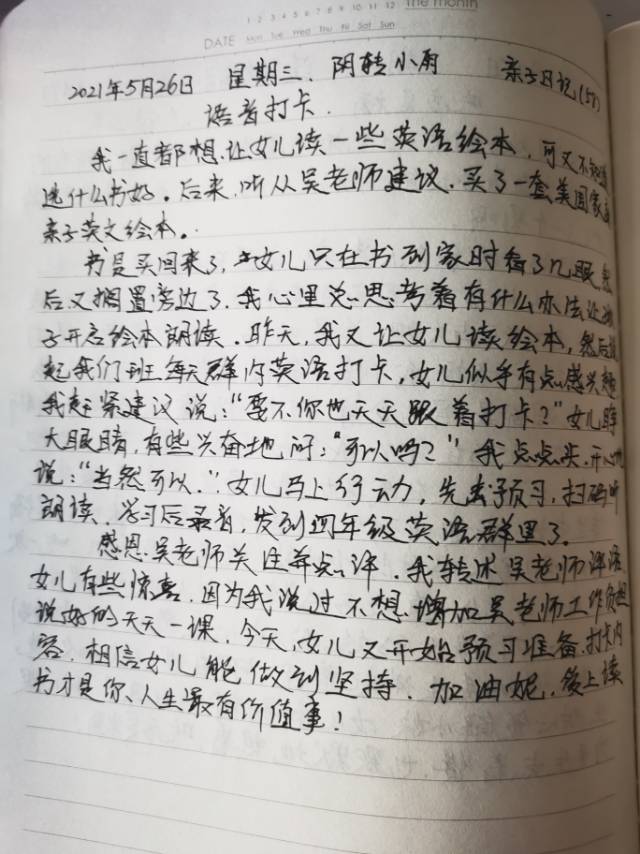 1 2 3 4 5 6 7 8 9 10 11 12 The month
DATE Mon Tue Wed Thu Fri Sat Sun
2021年5月26日 星期三. 阴转小雨 亲子日记(57)
语音打卡.
我一直都想让女儿读一些英语绘本,可又不知道
选什么书好。后来,听从吴老师建议,买了一套美国家庭
亲子英文绘本。
书是买回来了,女儿只在书到家时看了几眼,然
后又搁置旁边了,我心里总思考着有什么办法让孩
子开启绘本朗读。昨天,我又让女儿读绘本,然后说
起我们班每天群内英语打卡,女儿似乎有点感兴趣
我赶紧建议说:“要不你也天天跟着打卡?”女儿睁
大眼睛,有些兴奋地问:“可以吗?”我点点头,开心地
说:“当然可以.”女儿马上行动,先去预习,扫码听
朗读,学习后录音,发到四年级英语群里了。
感恩吴老师关注并点评,我转述吴老师评语
女儿有些惊喜,因为我说过不想增加吴老师工作负担
说好的天天一课,今天,女儿又开始预习准备打卡内
容,相信女儿能做到坚持,加油妮,爱上读
书才是你人生最有价值事!